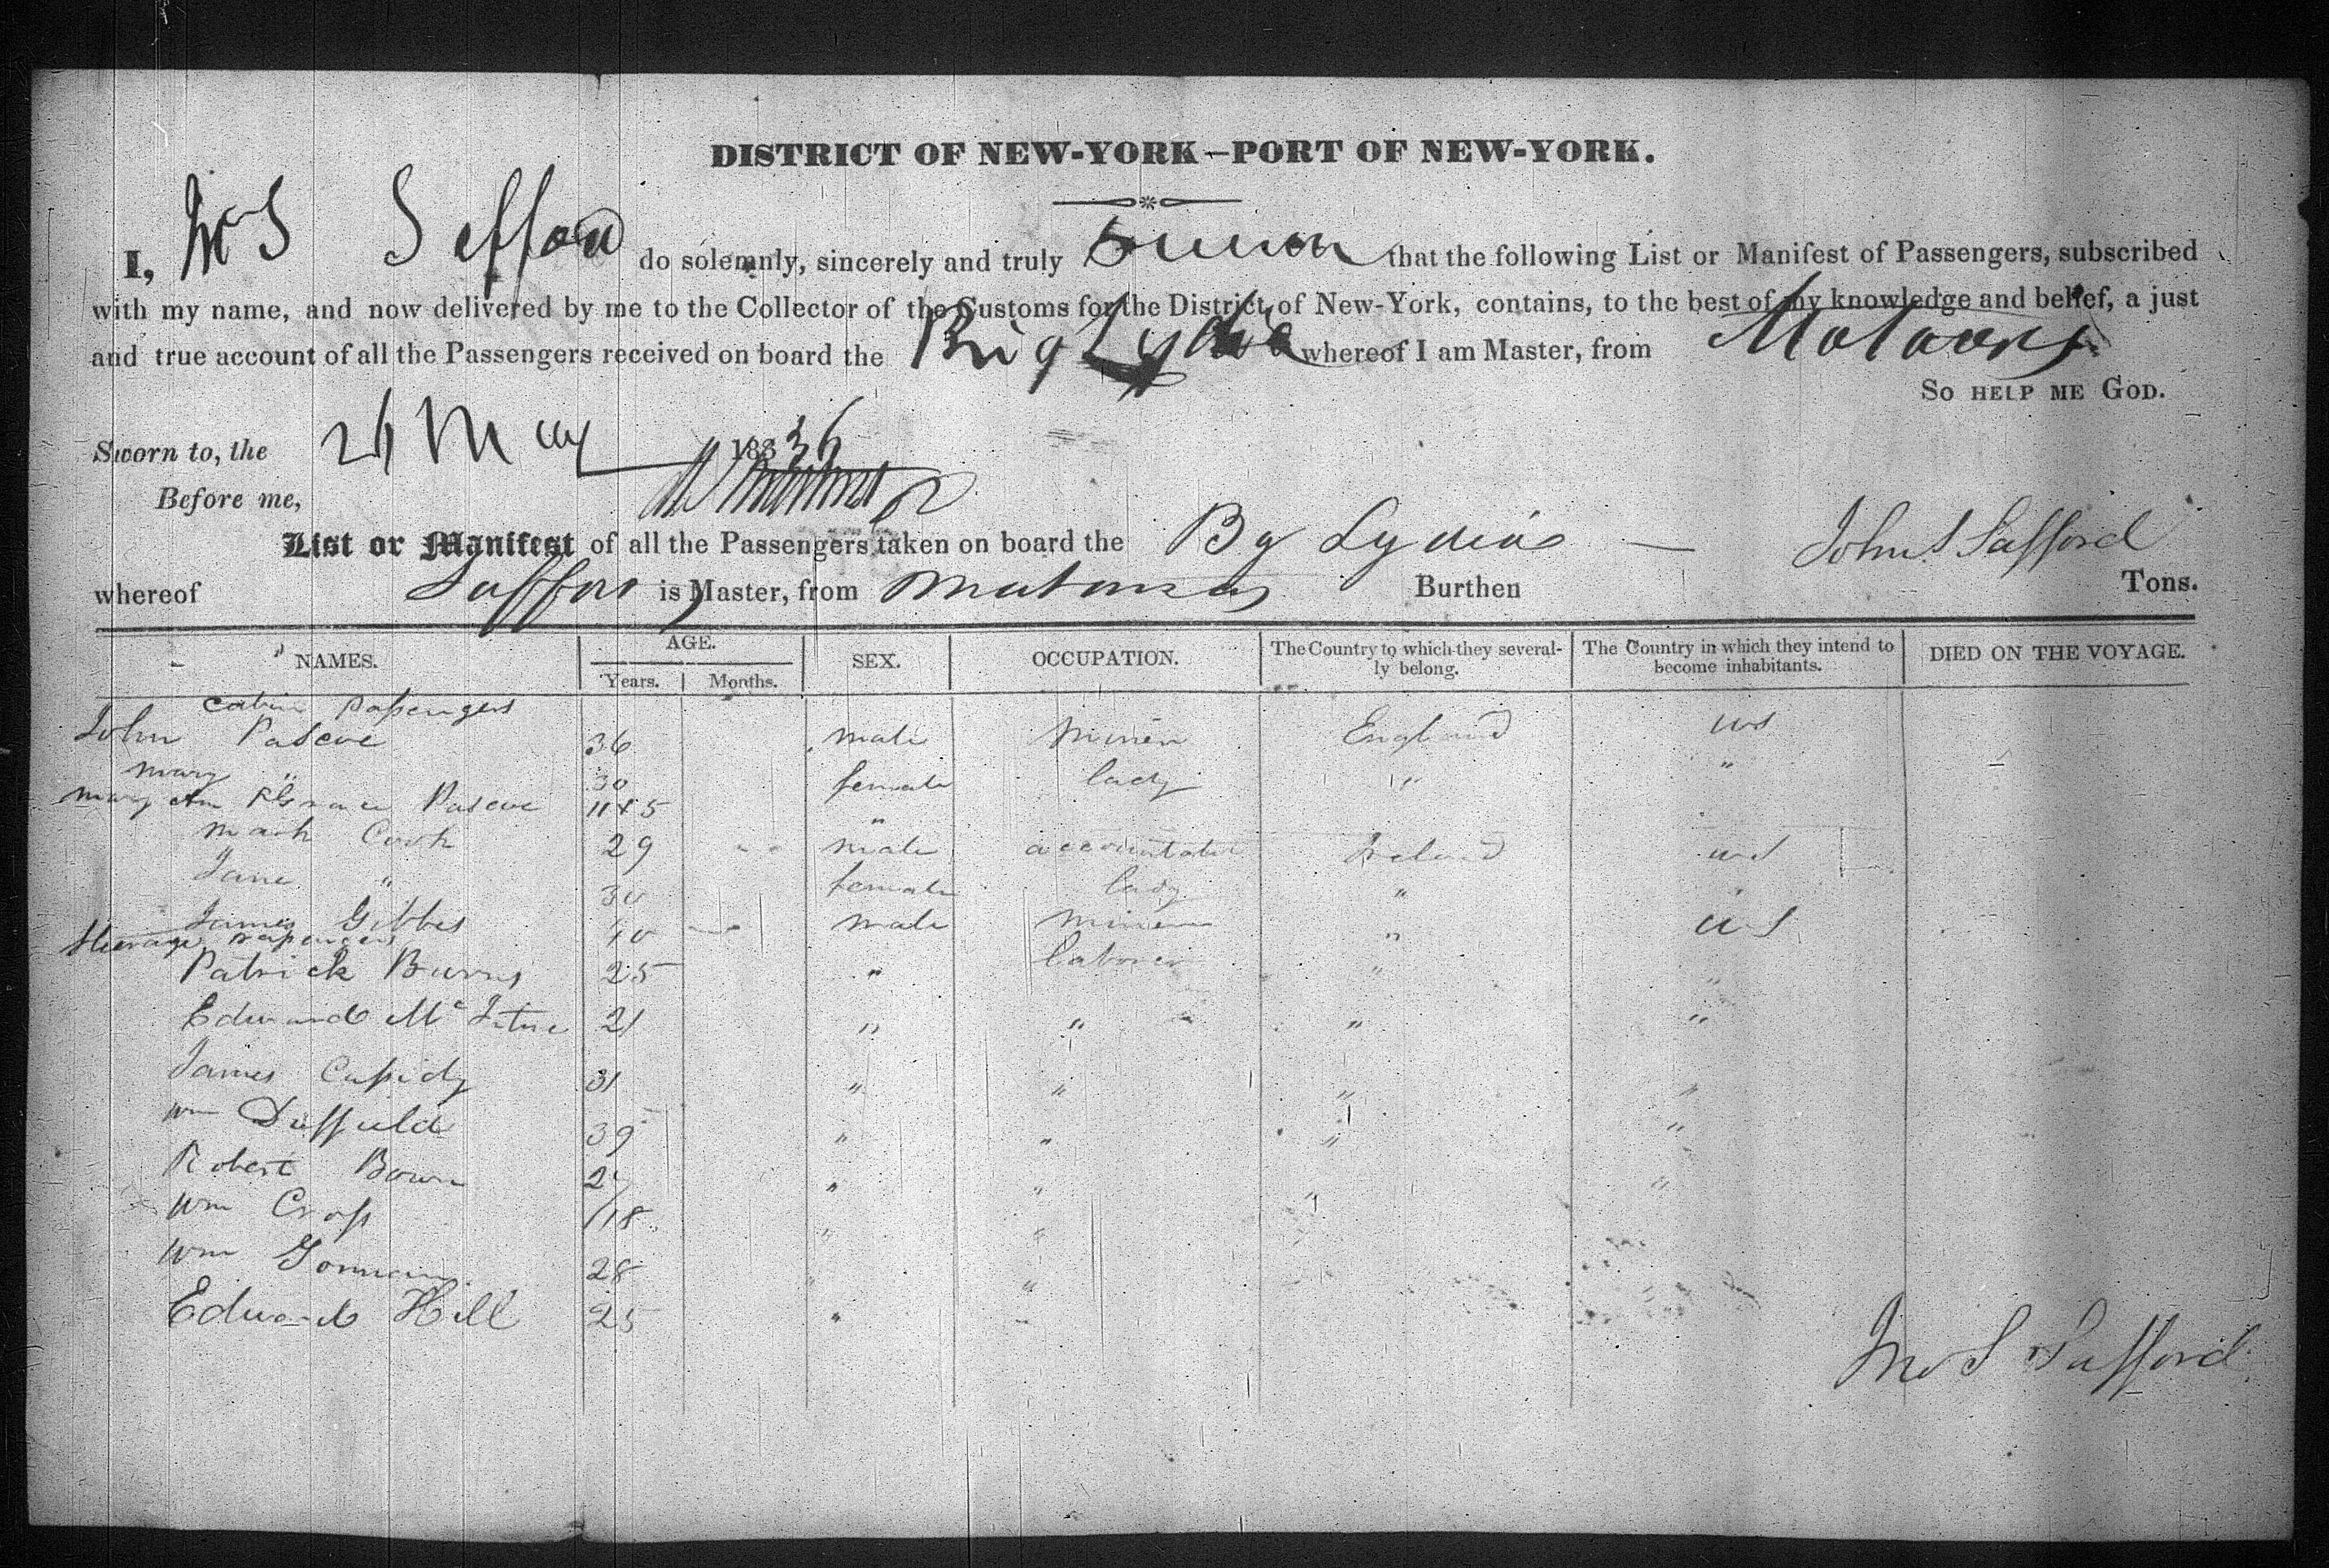 DISTRICT OF NEW-YORK—PORT OF NEW-YORK.
I, Jno S Safford do solemnly, sincerely and truly swear that the following List or Manifest of Passengers, subscribed
with my name, and now delivered by me to the Collector of the Customs for the District of New-York, contains, to the best of my knowledge and belief, a just
and true account of all the Passengers received on board the Brig Lydia whereof I am Master, from Matanzas
So HELP ME GOD.
Sworn to, the 26 May 18336
Before me,
List or Manifest of all the Passengers taken on board the Bg Lydia — John S Safford
whereof Safford is Master, from Matanzas Burthen Tons.
NAMES. AGE. Years. Months. SEX. OCCUPATION. The Country to which they severally belong. The Country in which they intend to become inhabitants. DIED ON THE VOYAGE.
cabin passengers
John Pascoe 36 male miner England US
mary " 30 female lady " "
mary Ann & Grace Pascoe 11 & 5 "
mark Cook 29 male Ireland US
Jane " 30 female lady " "
James Gibbes 40 male miner " US
Steerage passengers
Patrick Burns 25 " laborer " "
Edward Mc 21 " " " "
James Cassidy 31 " " " "
Wm Duffield 39 " " " "
Robert 24 " " " "
Wm Cross 18 " "
Wm Gorman 28 " "
Edward Hill 25 "
Jno S Safford